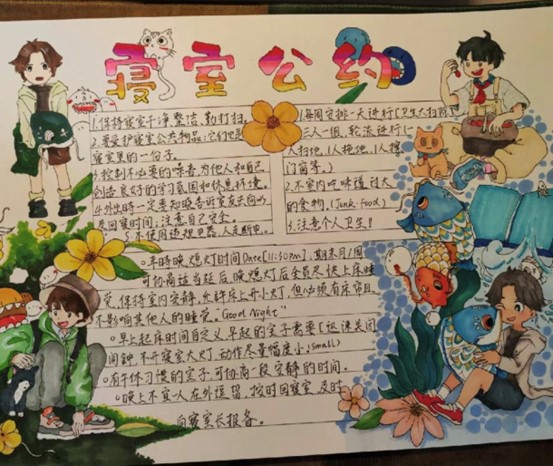 寝室公约
1.保持寝室干净、整洁,勤打扫。
2.要爱护寝室公共物品:它们也是
寝室里的一份子。
3.控制不必要的噪音,为他人和自己
创造良好的学习氛围和休息环境。
4.外出时一定要知晓室友去向以
及回寝时间,注意自己安全。
5.不使用违规电器,人走断电。
1.每周安排一天进行【卫生大扫除】
三人一组,轮流进行(
人扫地,1人拖地,1人擦
门窗等。)
2.不室内吃味道过大
的食物。(Junk food)
3.注意个人卫生!
平时晚熄灯时间Date[11:30pm],期末月/周
可协商适当延后,晚熄灯后全员尽快上床睡
觉,保持室内安静,允许床上开小灯,但必须有床帘且
不影响其他人的睡觉。"Good Night"
早上起床时间自定义,早起的室子需要【迅速关闭
闹钟,不开寝室大灯,动作尽量幅度小。small)
有午休习惯的室子,可协商一段安静的时间。
晚上不宜一人在外逗留,按时回寝室,及时
向寝室长报备。